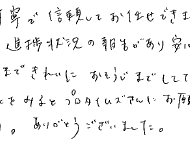 寧で信頼してお任せできま
進捗状況の報告があり安
まできれいにおそうじまでしてて
とをみるとプロタイムズさんにお願
。ありがとうございました。